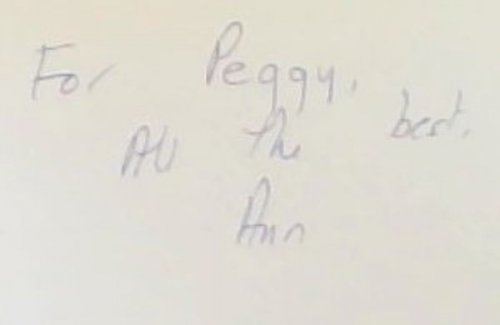 For Peggy.
All the best.
Ann